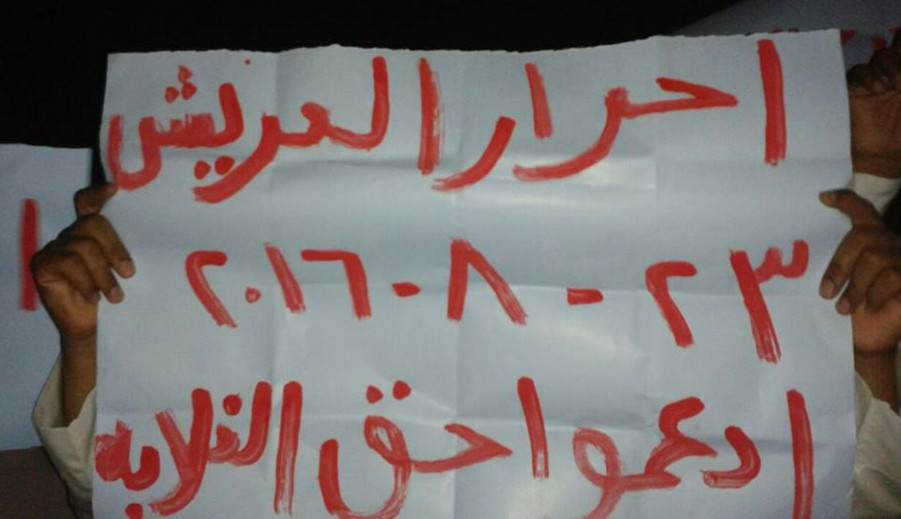 احرار العريش
٢٣ - ٨ - ٢٠١٦
ادعموا حق الغلابه